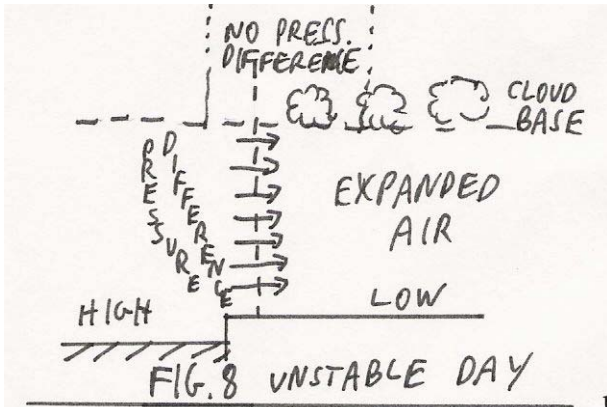 NO PRESS.
DIFFERENCE
CLOUD
BASE
PRESSURE
DIFFERENCE
EXPANDED
AIR
LOW
HIGH
FIG. 8 UNSTABLE DAY